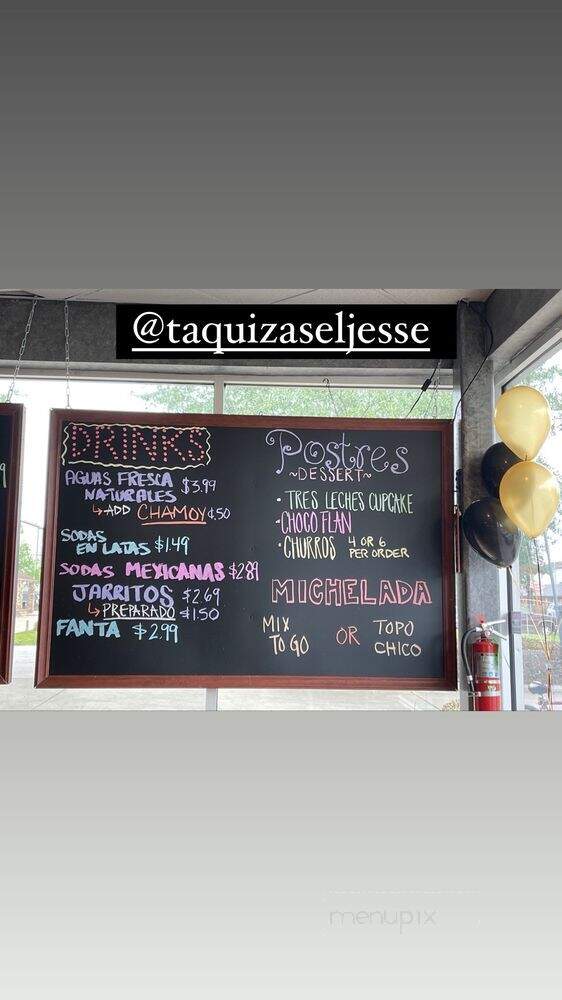 @taquizaseljesse
DRINKS
AGUAS FRESCA
NATURALES $3.99
↳ADD CHAMOY $.50
SODAS
EN LATAS $1.49
SODAS MEXICANAS $2.89
JARRITOS $2.69
↳PREPARADO $1.50
FANTA $2.99
Postres
~DESSERT~
• TRES LECHES CUPCAKE
• CHOCO FLAN
• CHURROS 4 OR 6
PER ORDER
MICHELADA
MIX
TO GO
OR
TOPO
CHICO
menupix